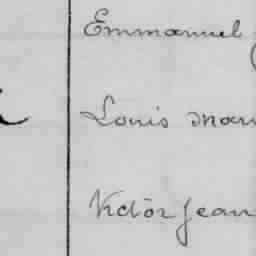 Emmanuel
Louis Mari
Victor Jean